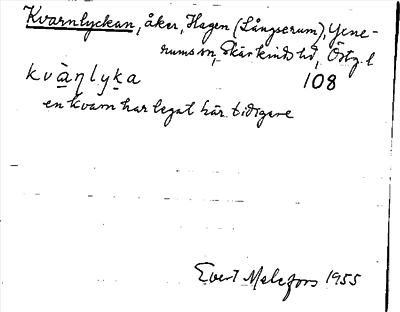 Kvarnlyckan, åker, Hagen (Långserum), Yxne-
rums sn, Skärkinds hd, Östg. l
kvàṇlyka 108
en kvarn har legat här tidigare
Evert Melefors 1955